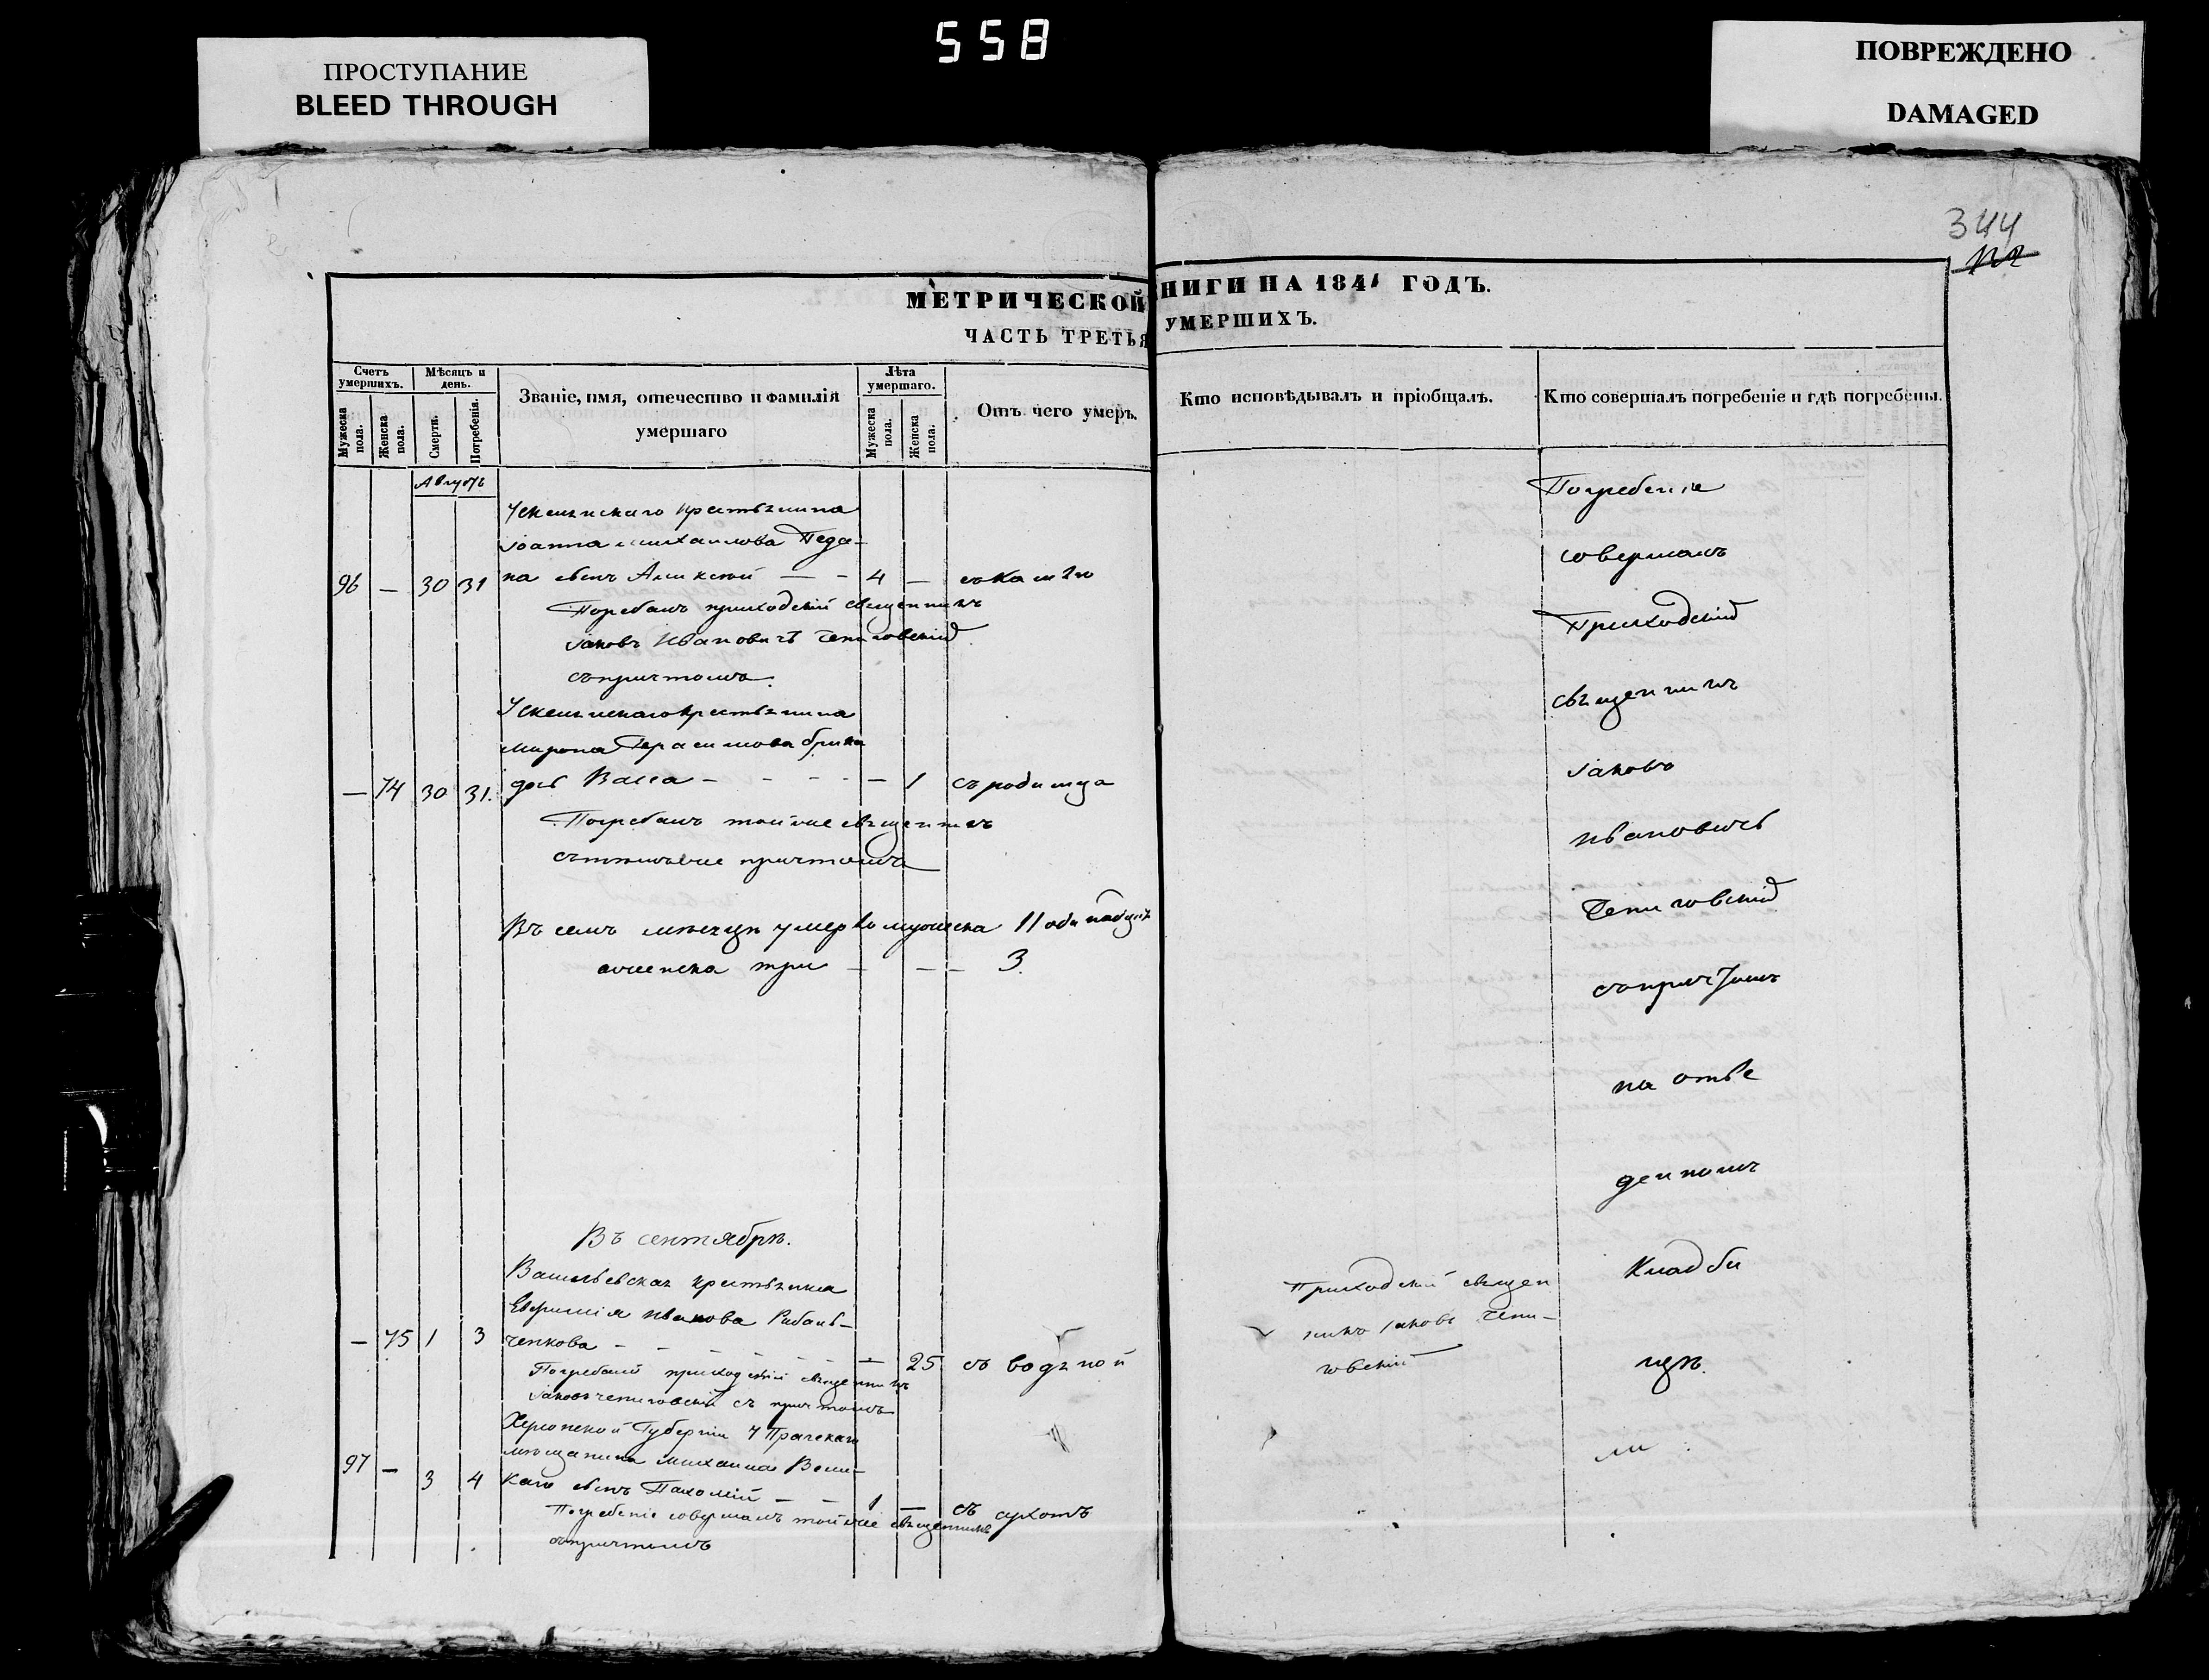 558
ПРОСТУПАНИЕ
BLEED THROUGH
ПОВРЕЖДЕНО
DAMAGED
344
МЕТРИЧЕСКОЙ НИГИ НА 1841 ГОДЪ.
ЧАСТЬ ТРЕТЬЯ УМЕРШИХЪ.
Счетъ умершихъ.
Мужеска пола.
Женска пола.
Мѣсяцъ и день.
Смерти.
Погребенія.
Званіе, имя, отечество и фамилія умершаго
Лѣта умершаго.
Мужеска пола.
Женска пола.
Отъ чего умеръ.
Кто исповѣдывалъ и пріобщалъ.
Кто совершалъ погребеніе и гдѣ погребены.
Августъ
крестьянина
Іоанна Михайлова Педа-
96 — 30 31 на сынъ Алексѣй — - 4 — съ кашлю
Погребалъ приходскій священникъ
Іаковъ Ивановичъ Чепиговскій
съ причтомъ.
крестьянина
Мирона Герасимова
— 74 30 31. дочь Васса - - - - — 1 съ родимца
Погребалъ тойже священникъ
съ тѣмъже причтомъ
Въ семъ мѣсяцѣ умерло мужеска 11 одинадцать
женска три — — — 3.
Въ сентябрѣ.
Васильевская крестьянка
Евфимія Иванова Рибаль-
— 75 1 3 ченкова - - - - - — 25 съ водяной
Погребалъ приходскій священникъ
Іаковъ Чепиговскій съ причтомъ
Херсонской Губерніи
мѣщанина Михаила Вели-
97 — 3 4 каго сынъ Пахомій — — 1 — съ сухотъ
Погребеніе совершалъ тойже священникъ
съ причтомъ
Приходскій священ
никъ Іаковъ Чепи-
говскій
Погребеніе
совершалъ
Приходскій
священникъ
Іаковъ
Ивановичъ
Чепиговскій
съ причтомъ
на отве
денномъ
Кладби
щѣ.